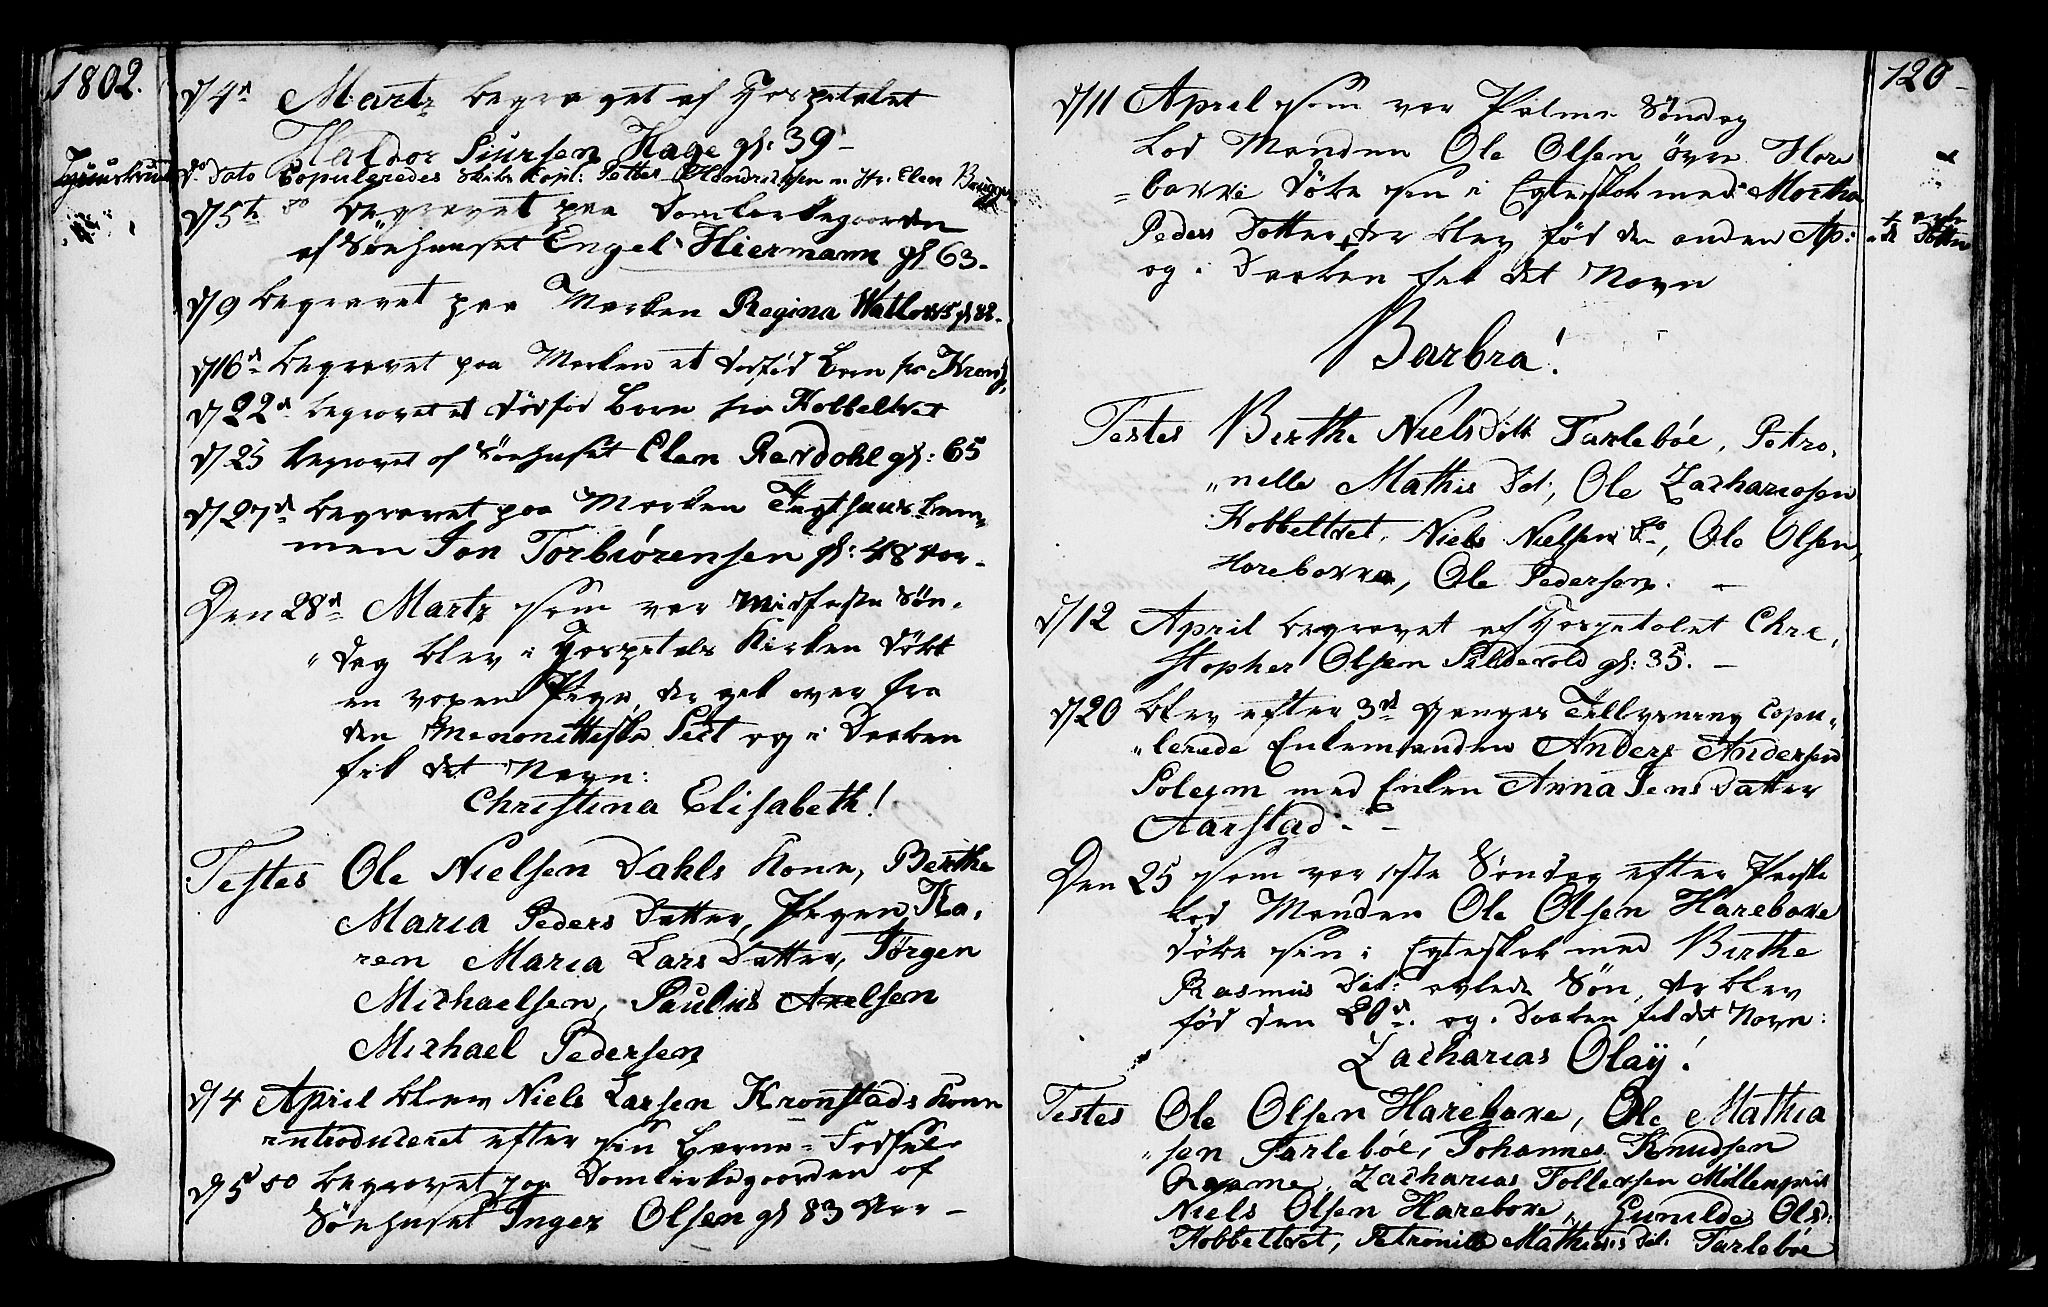 1802.
d/4d Martz begravet af Hospitalet
Haldor Siursen Hage gl: 39 -
do Dato Copuleredes
d/5te do begravet paa Domkirkegaarden
af Søehuuset Engel Hiermann gl 63 -
d/9 begravet paa Marken Regina Watlous gl 82 -
d/16d begravet paa Marken et dødfød Barn fra Kronst,
d/22d begravet et dødfød Barn fra Kobbeltvet
d/25 begravet af Søehuset Elen Revdohl gl: 65
d/27d begravet paa Marken Tugthuus lem,
men Jon Torbiörensen gl: 48 Aar -
Den 28d Martz som var Midfaste Søn,
„dag blev i Hospitals Kirken døbt
en voxen Pige, der gik over fra
den Menonittiske Sect og i Daaben
fik det Navn:
Christina Elisabeth!
Testes Ole Nielsen Dahls Kone, Berthe
Maria Peders Datter, Pigen Ka,
ren Maria Lars Datter, Jørgen
Michaelsen, Paulus Axelsen
Michael Pedersen
d/4 April blev Niels Larsen Kronstads Kone
introduceret efter sin Barne = Fødsel.
d/5 do begravet paa Domkirkegaarden af
Søehuset Inger Olsen gl 83 Aar -
120
d/11 April som var Palme Søndag
lod Manden Ole Olsen øvre Hare
= bakke døbe sin i Egteskab med Martha
Peders Datter + der blev fød den anden Ap:
+ avle
de Datter
og i Daaben fik det Navn
Barbra!
Testes Birthe Nielsdatt Tarleböe, Petro,
„nelle Mathis Dat:, Ole Zachariasen
Kobbeltvet, Niels Nielsen do, Ole Olsen,
Harebakke, Ole Pedersen. -
d/12 April begravet af Hospitalet Chri,
stopher Olsen Sildevold gl: 35. -
d/20 blev efter 3de Ganges Tillysning Copu,
„lerede Enkemanden Anders Andersen
Soleim med Enken Anna Jens Datter
Aarstad. -
Den 25 som var 1ste Søndag efter Paaske
lod Manden Ole Olsen Harebake
døbe sin i Egteskab med Birthe
Rasmus Dat: avlede Søn, der blev
fød den 20d. og i Daaben fik det Navn:
Zacharias Olay!
Testes Ole Olsen Harebake, Ole Mathia
„sen Tarleböe, Johannes Knudsen
Zacharias Tollevsen Möllenpriis
Niels Olsen Harebake, Gunilde Olsd:
Kobbeltvet, Petronille Mathias Dat: Tarleböe